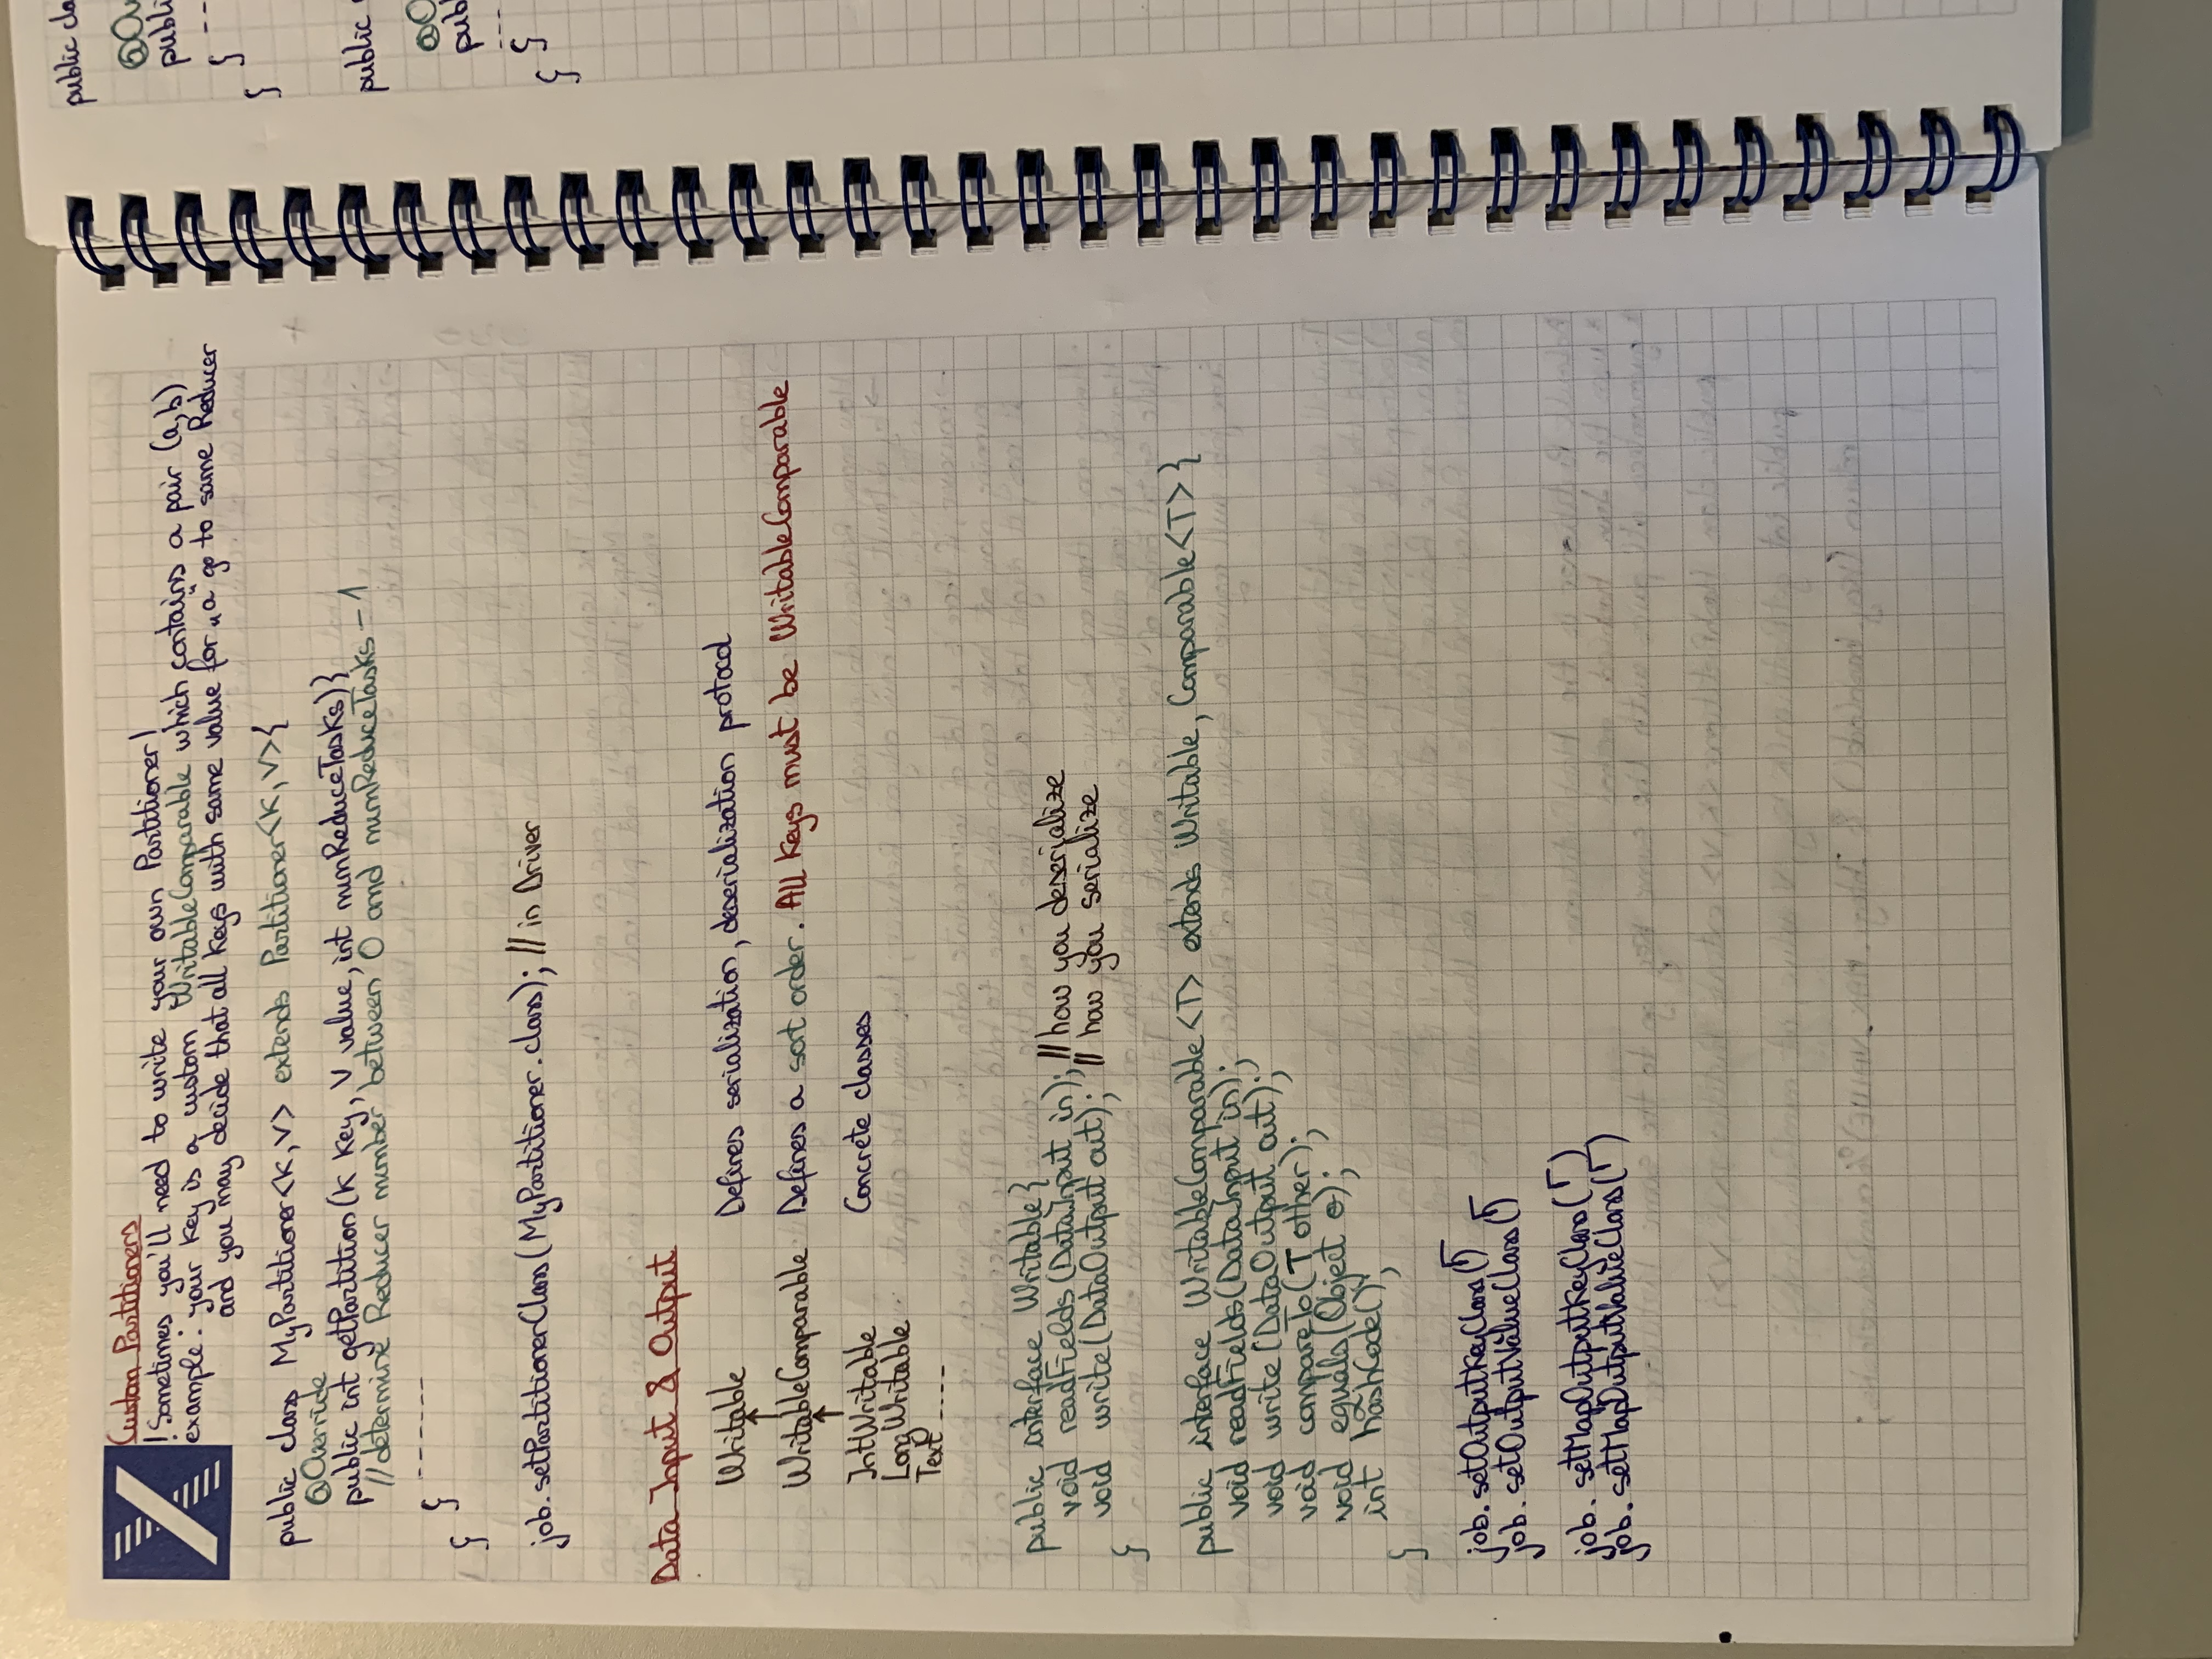 Custom Partitioners
! Sometimes you'll need to write your own Partitioner!
example: your key is a custom WritableComparable which contains a pair (a,b)
and you may decide that all keys with same value for "a" go to same Reducer
public class MyPartitioner<K,V> extends Partitioner<K,V>{
@Override
public int getPartition(K key, V value, int numReduceTasks){
//determine Reducer number between 0 and numReduceTasks-1
-------
}
}
job.setPartitionerClass(MyPartitioner.class); // in Driver
Data Input & Output
Writable Defines serialization, deserialization protocol
WritableComparable Defines a sort order. All keys must be WritableComparable
IntWritable Concrete classes
LongWritable
Text -----
public interface Writable{
void readFields(DataInput in); // how you deserialize
void write(DataOutput out); // how you serialize
}
public interface WritableComparable<T> extends Writable, Comparable<T>{
void readFields(DataInput in);
void write(DataOutput out);
void compareTo(T other);
void equals(Object o);
int hashCode();
}
job.setOutputKeyClass()
job.setOutputValueClass()
job.setMapOutputKeyClass()
job.setMapOutputValueClass()
public cla
@Ov
publi
---
}
}
public
@O
pub
---
}
}